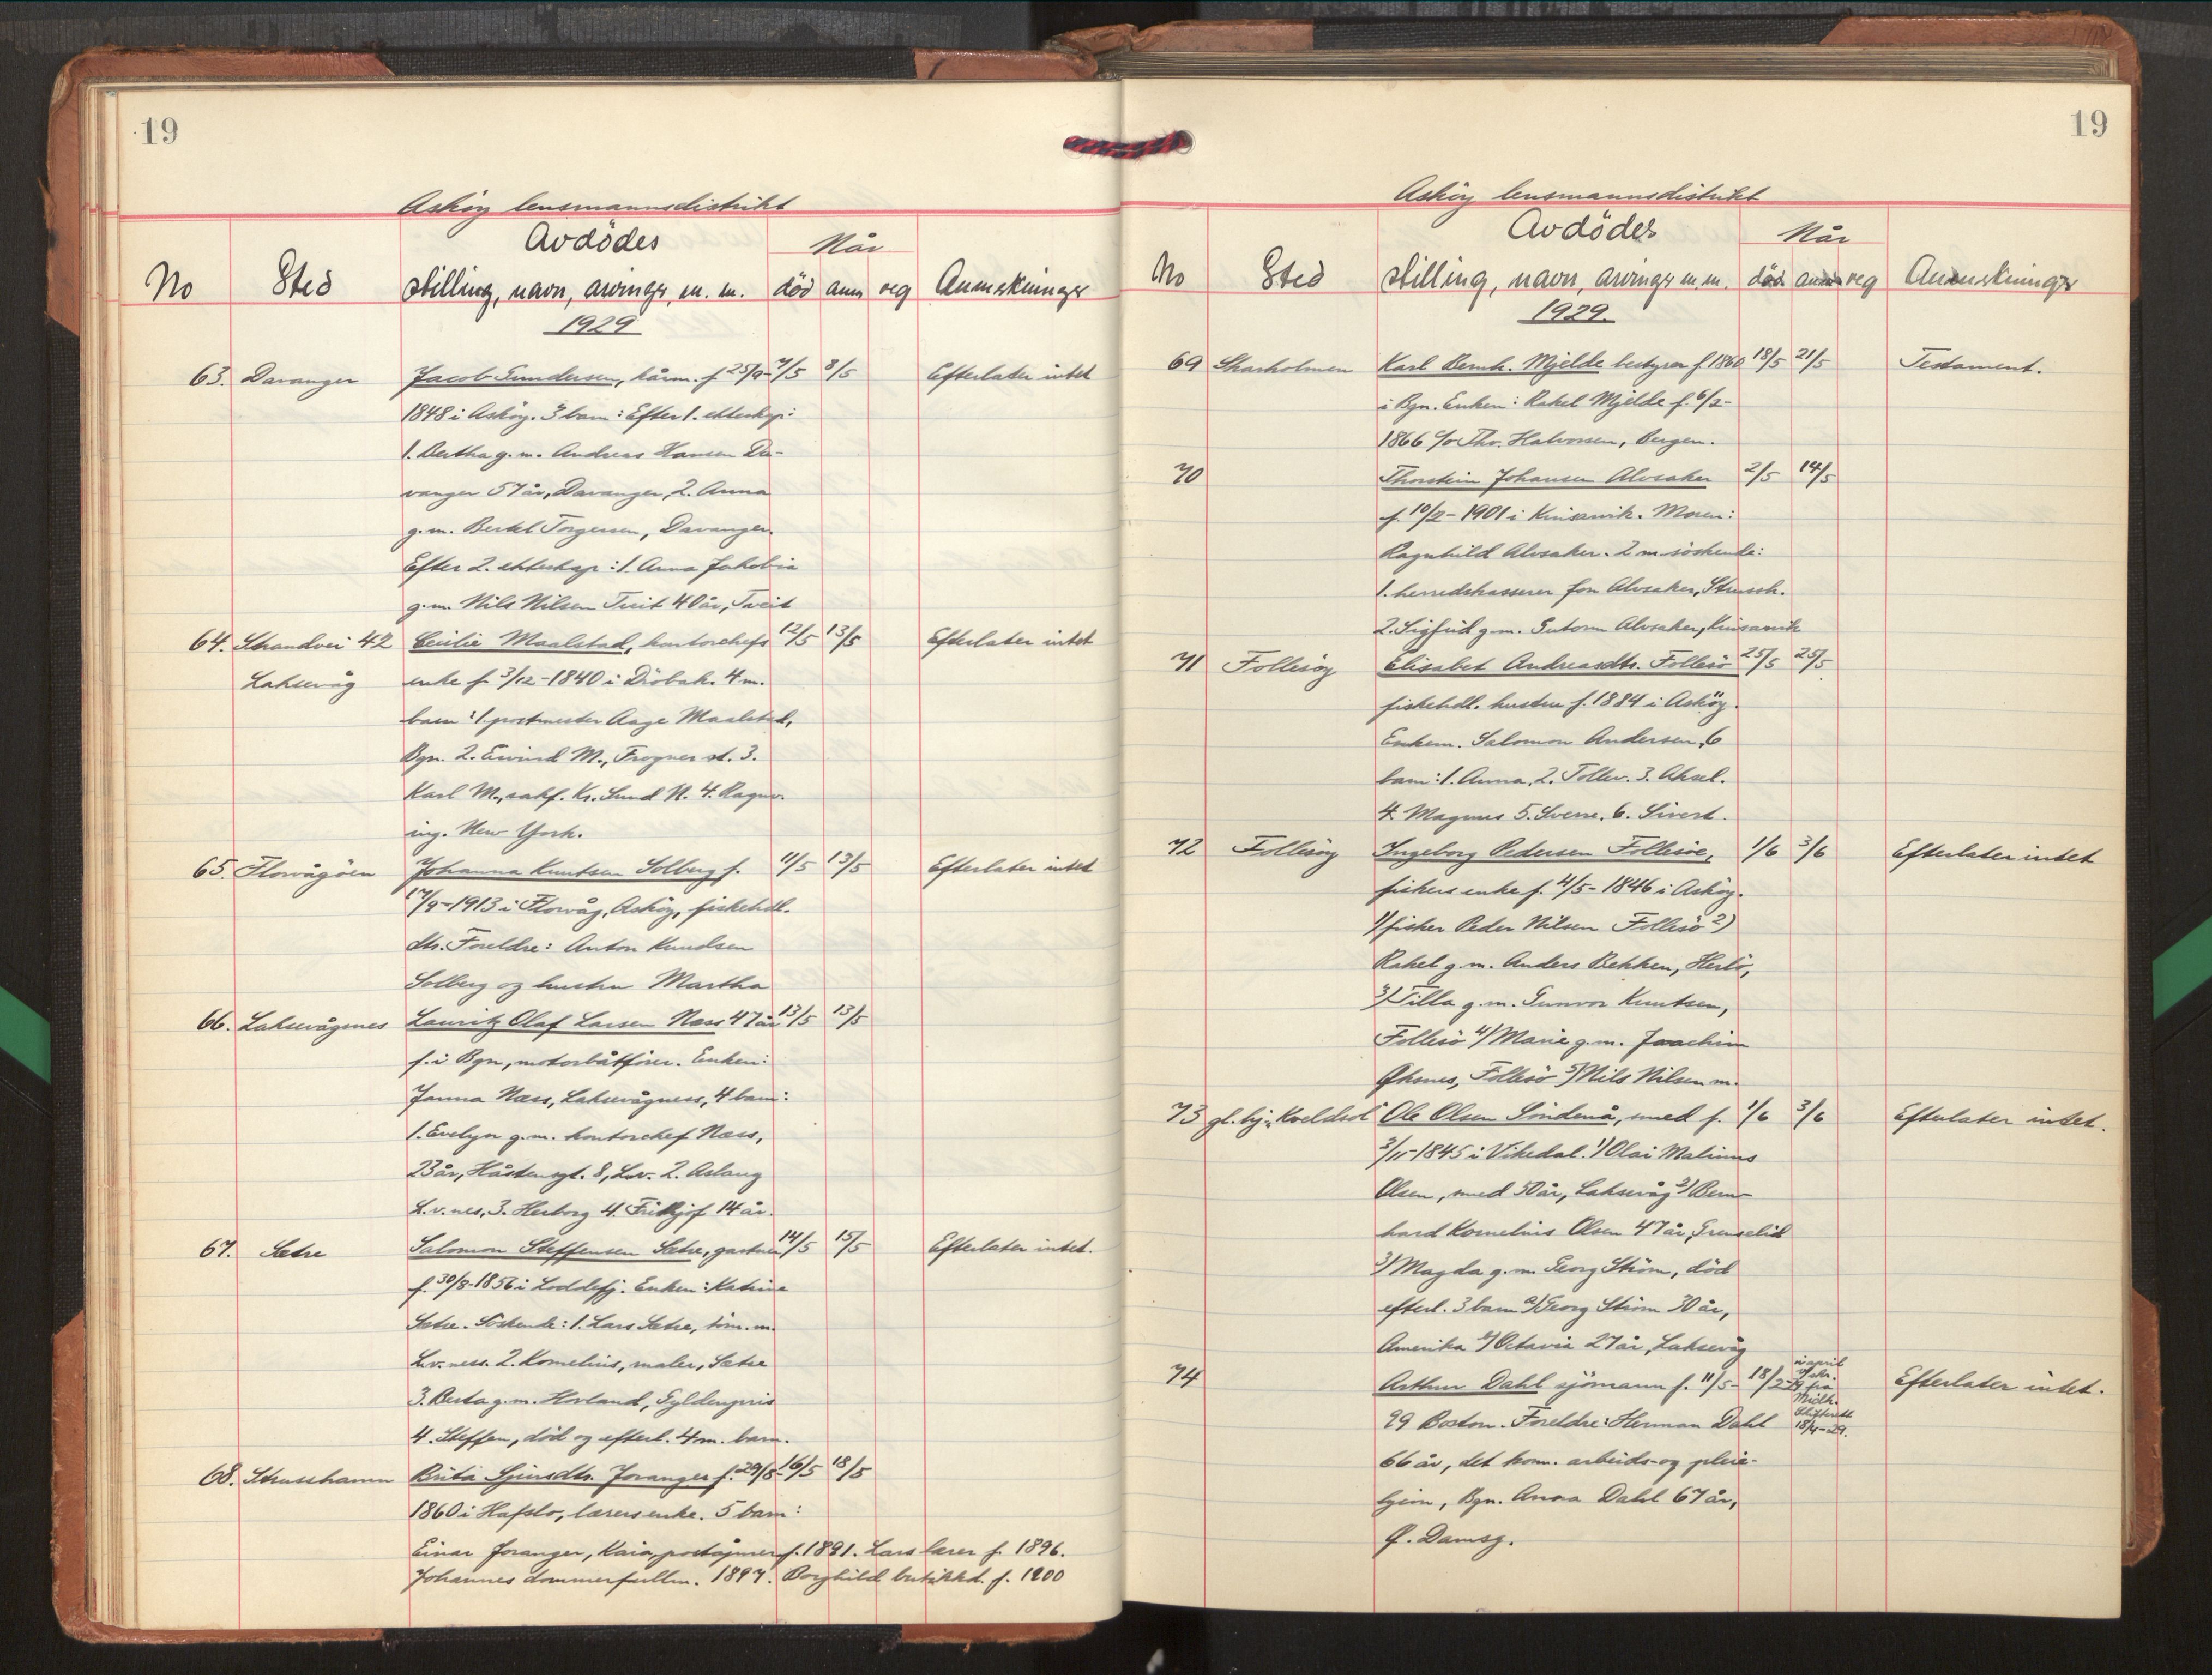 19
Askøy lensmannsdistrikt
No Sted Avdödes stilling, navn, arvinger, m. m. Når död anm reg Anmerkninger
1929
63. Davanger Jacob Gundersen, kårm. f 25/9- 7/5 8/5 Efterlater intet
1848 i Askøy. 3 barn: Efter 1. ekteskap:
1. Bertha g. m. Andreas Hansen Da-
vanger 57 år, Davanger, 2. Anna
g. m. Bertel Torgersen, Davanger.
Efter 2. ekteskap: 1. Anna Jakobia
g. m. Nils Nilsen Tveit 40 år, Tveit
64. Strandvei 42 Cecilie Maalstad, kontorchefs 12/5 13/5 Efterlater intet
Laksevåg enke f. 3/12-1840 i Dröbak. 4 m.
barn: 1. postmester Aage Maalstad,
Bgn. 2. Eivind M., Frogner st. 3.
Karl M., sakf. Kr. Sund N. 4. Ragnv.
ing. New York.
65. Florvågöen Johanna Knutsen Solberg f. 11/5 13/5 Efterlater intet
17/9-1913 i Florvåg, Askøy, fiskehdl.
dtr. Foreldre: Anton Knudsen
Solberg og hustru Martha
66. Laksevågsnes Lauritz Olaf Larsen Næss 47 år 13/5 13/5
f. i Bgn, motorbåtförer. Enken:
Janna Næss, Laksevågness, 4 barn:
1. Evelyn g. m. kontorchef Næss,
23 år, Håsteinsgt. 8, L.v. 2. Aslaug
L. v. nes, 3. Herborg 4. Fritjof 14 år.
67. Sætre Salomon Steffensen Sætre, gartner 14/5 15/5 Efterlater intet.
f. 30/8-1856 i Loddefj. Enken: Katrine
Sætre. Söskende: 1. Lars Sætre, töm. m.
L.v. ness. 2. Kornelius, maler, Sætre
3. Berta g. m. Hovland, Gyldenpris
4. Steffen, död og efterl. 4 m. barn.
68. Strusshamn Brita Sjursdtr. Joranger f. 29/8- 16/5 18/5
1860 i Hafslo, lærersenke. 5 barn:
Einar Joranger, Kaia, poståpner f. 1891. Lars lærer f. 1896.
Johannes dommerfullm. 1897. Borghild butikkd. f. 1900
19
Askøy lensmannsdistrikt
No Sted Avdödes stilling, navn, arvinger m. m. Når död anm reg Anmerkninger
1929.
69 Skarholmen Karl Bernh. Mjelde bestyrer f. 1860 18/5 21/5 Testament.
i Bgn. Enken: Rakel Mjelde f. 6/2-
1866 c/o Thv. Halvorsen, Bergen.
70 Thorstein Johansen Alvsaker 2/5 14/5
f. 10/2-1901 i Kinsarvik. Moren:
Ragnhild Alvsaker. 2 m. söskende:
1. herredskasserer Jon Alvsaker, Strussh.
2. Sigfrid g. m. Gutorm Alvsaker, Kinsarvik
71 Follesøy Elisabet Andreasdtr. Follesö 25/5 25/5
fiskehdl. hustru f. 1884 i Askøy.
Enkem. Salomon Andersen, 6
barn: 1. Anna, 2. Tollev. 3. Aksel.
4. Magnus 5. Sverre. 6. Sivert.
72 Follesøy Ingeborg Pedersen Follesöe, 1/6 3/6 Efterlater intet
fiskers enke f. 4/5-1846 i Askøy.
1/ fisker Peder Nilsen Follesö 2)
Rakel g. m. Anders Bekken, Herlö,
3/ Tilla g. m. Gunvor Knutsen,
Follesö 4/ Marie g. m. Joachim
Øksnes, Follesö 5/ Nils Nilsen m.
73 gl. bg. "Kveldsol" Ole Olsen Söndenå, smed f. 1/6 3/6 Efterlater intet.
3/11-1845 i Vikedal. 1/ Olai Malinius
Olsen, smed 50 år, Laksevåg 2/ Bern-
hard Kornelius Olsen 47 år, Grenselid
3/ Magda g. m. Georg Ström, död
efterl. 3 barn a/ Georg Ström 30 år,
Amerika b/ Octavia 27 år, Laksevåg
74 Arthur Dahl sjömann f. 11/5- 18/2-29 i april v/skr. fra Midh. Skifterett 18/4-29. Efterlater intet.
99 Boston. Foreldre: Herman Dahl
66 år, det kom. arbeids- og pleie-
hjem, Bgn. Anna Dahl 67 år,
Ø. Damsg.